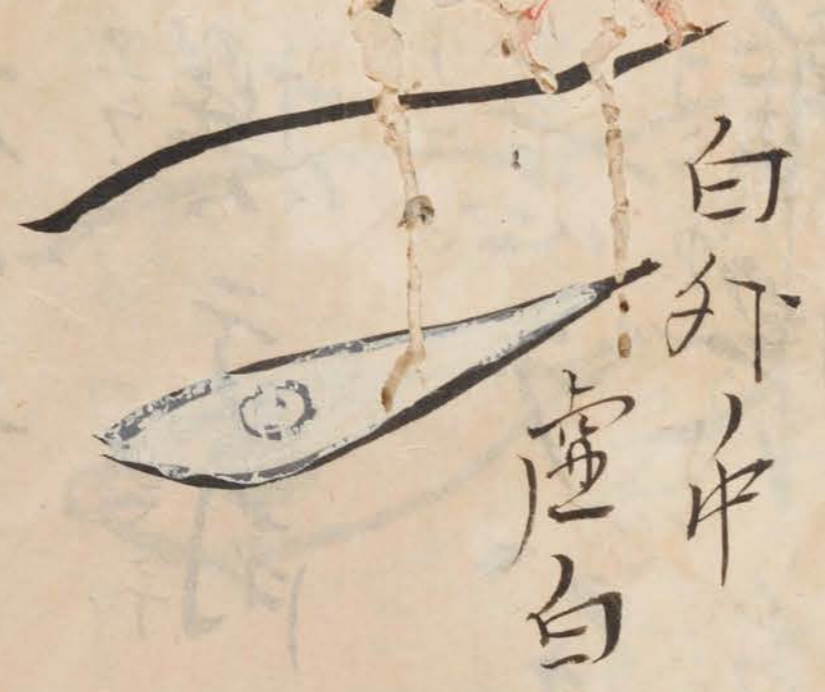 白外ノ中
虚白